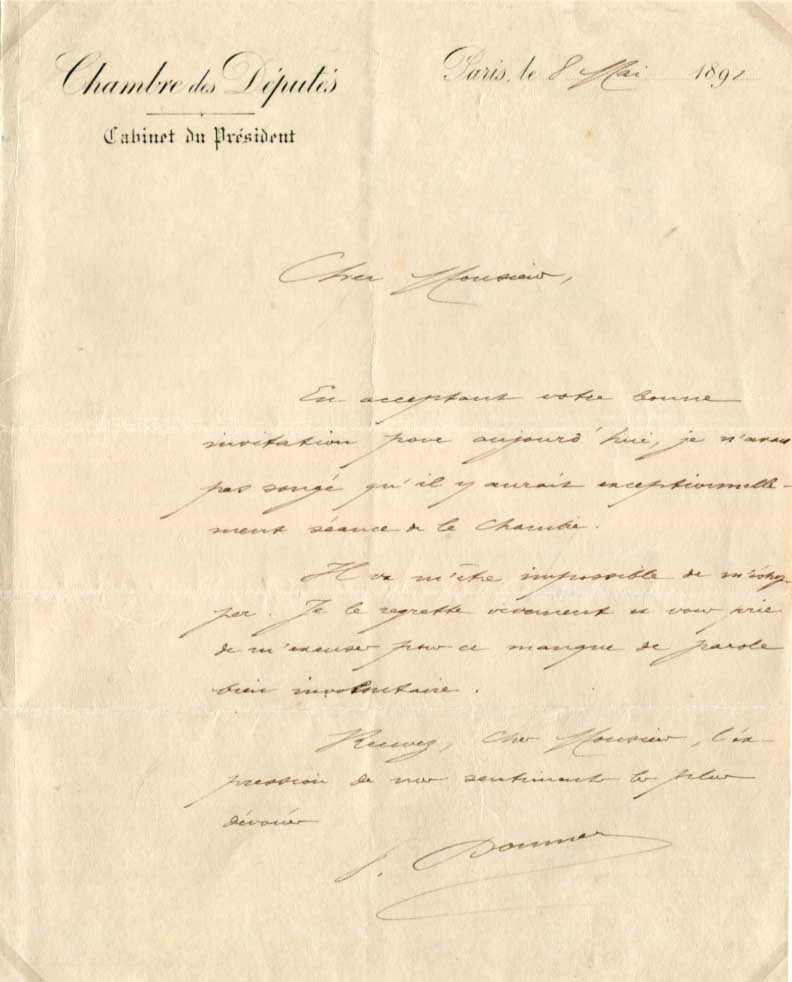 Chambre des Députés
Cabinet du Président
Paris, le 8 Mai 189
Cher Monsieur,
En acceptant votre bonne
invitation pour aujourd'hui, je n'avais
pas songé qu'il y aurait exceptionnelle-
ment séance de la Chambre.
Il va m'être impossible de m'échap-
per. Je le regrette vivement et vous prie
de m'excuser pour ce manque de parole
bien involontaire.
Recevez, Cher Monsieur, l'ex-
pression de mes sentiments les plus
dévoués
P. Doumer